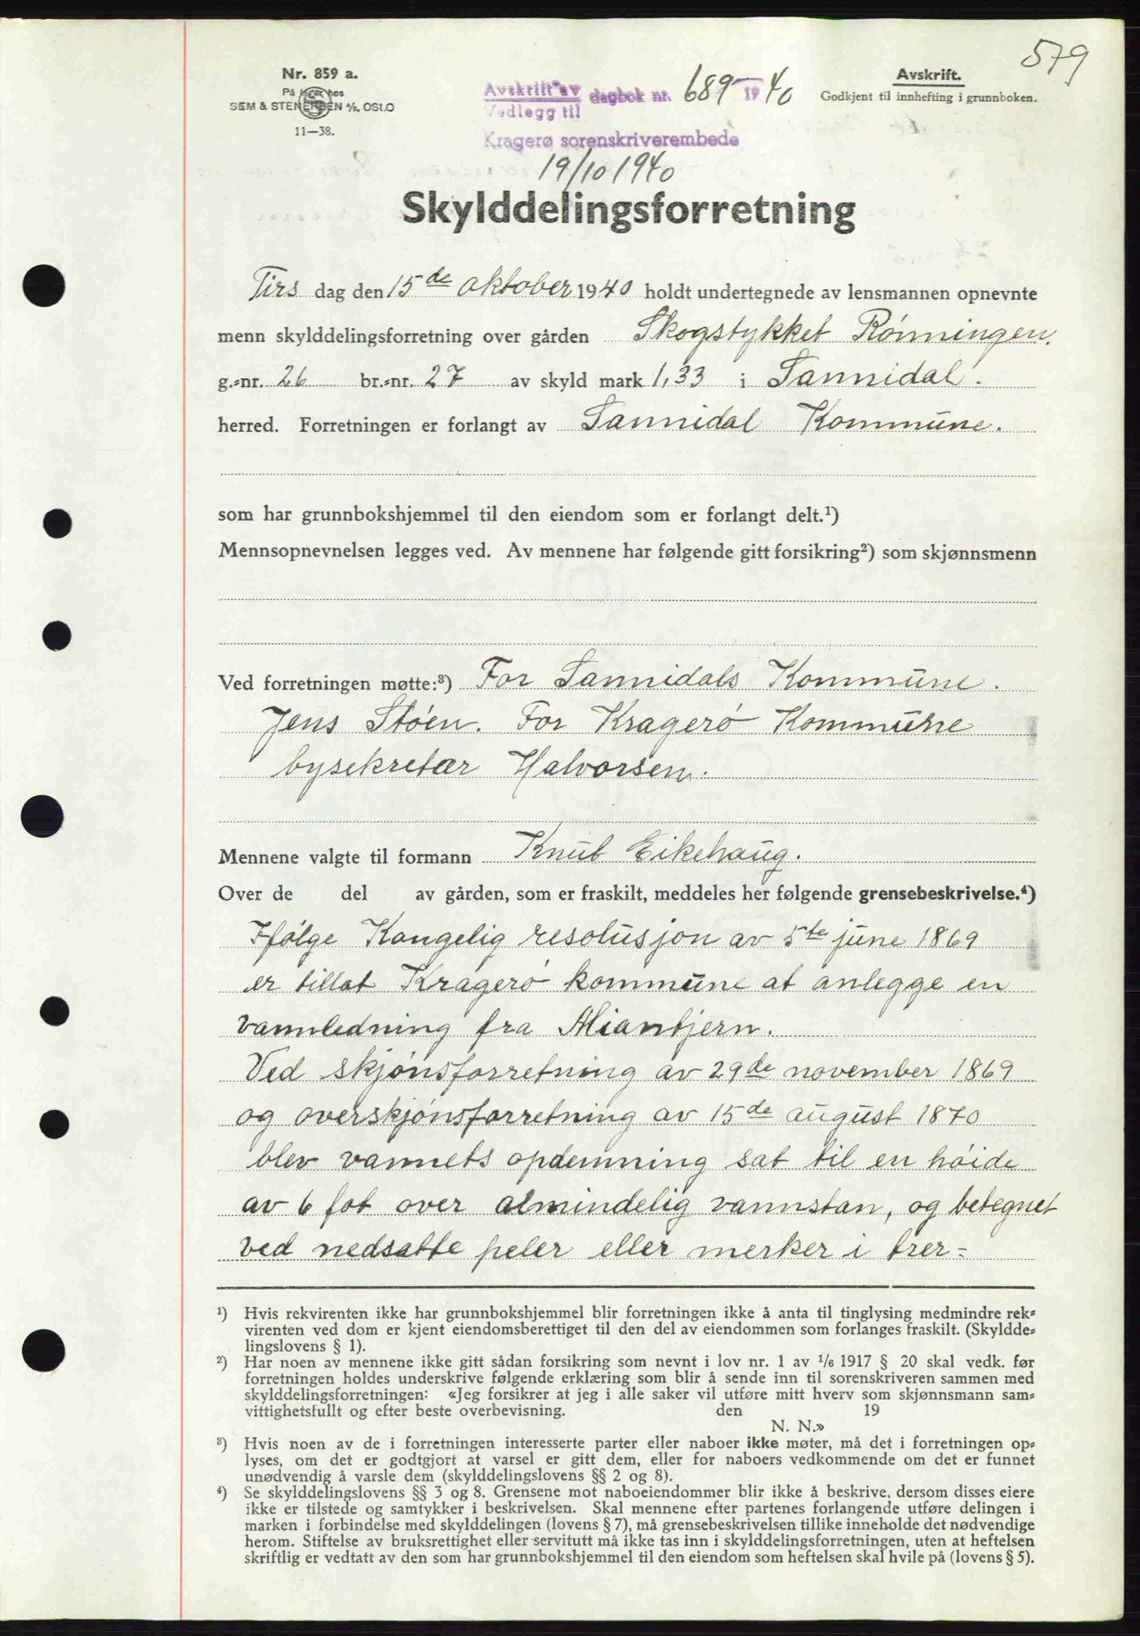 579
Nr. 859 a.
På lager hos
SEM & STENERSEN A/S, OSLO
11—38.
Avskrift av
Vedlegg til
dagbok nr. 689 1940
Kragerø sorenskriverembede
19/10 1940
Avskrift.
Godkjent til innhefting i grunnboken.
Skylddelingsforretning
Tirs dag den 15de oktober 1940 holdt undertegnede av lensmannen opnevnte
menn skylddelingsforretning over gården Skogstykket Rønningen.
g.-nr. 26 br.-nr. 27 av skyld mark 1,33 i Sannidal.
herred. Forretningen er forlangt av Sannidal Kommune.
som har grunnbokshjemmel til den eiendom som er forlangt delt.¹)
Mennsopnevnelsen legges ved. Av mennene har følgende gitt forsikring²) som skjønnsmenn
Ved forretningen møtte:³) For Sannidals Kommune.
Jens Støen. For Kragerø Kommune
bysekretær Halvorsen.
Mennene valgte til formann Knut Eikehaug.
Over de del av gården, som er fraskilt, meddeles her følgende grensebeskrivelse.⁴)
Ifølge Kongelig resolusjon av 5te june 1869
er tillat Kragerø kommune at anlegge en
vannledning fra Mianbjern.
Ved skjønsforretning av 29de november 1869
og overskjønsforretning av 15de august 1870
blev vannets opdemning sat til en høide
av 6 fot over almindelig vannstan, og betegnet
ved nedsatte peler eller merker i trer-
¹) Hvis rekvirenten ikke har grunnbokshjemmel blir forretningen ikke å anta til tinglysing medmindre rek-
virenten ved dom er kjent eiendomsberettiget til den del av eiendommen som forlanges fraskilt. (Skyldde-
lingslovens § 1).
²) Har noen av mennene ikke gitt sådan forsikring som nevnt i lov nr. 1 av 1/6 1917 § 20 skal vedk. før
forretningen holdes underskrive følgende erklæring som blir å sende inn til sorenskriveren sammen med
skylddelingsforretningen: «Jeg forsikrer at jeg i alle saker vil utføre mitt hverv som skjønnsmann sam-
vittighetsfullt og efter beste overbevisning. den 19
N. N.»
³) Hvis noen av de i forretningen interesserte parter eller naboer ikke møter, må det i forretningen op-
lyses, om det er godtgjort at varsel er gitt dem, eller for naboers vedkommende om det er funnet
unødvendig å varsle dem (skylddelingslovens §§ 2 og 8).
⁴) Se skylddelingslovens §§ 3 og 8. Grensene mot naboeiendommer blir ikke å beskrive, dersom disses eiere
ikke er tilstede og samtykker i beskrivelsen. Skal mennene efter partenes forlangende utføre delingen i
marken i forbindelse med skylddelingen (lovens § 7), må grensebeskrivelsen tillike inneholde det nødvendige
herom. Stiftelse av bruksrettighet eller servitutt må ikke tas inn i skylddelingsforretningen, uten at heftelsen
skriftlig er vedtatt av den som har grunnbokshjemmel til den eiendom som heftelsen skal hvile på (lovens § 5).